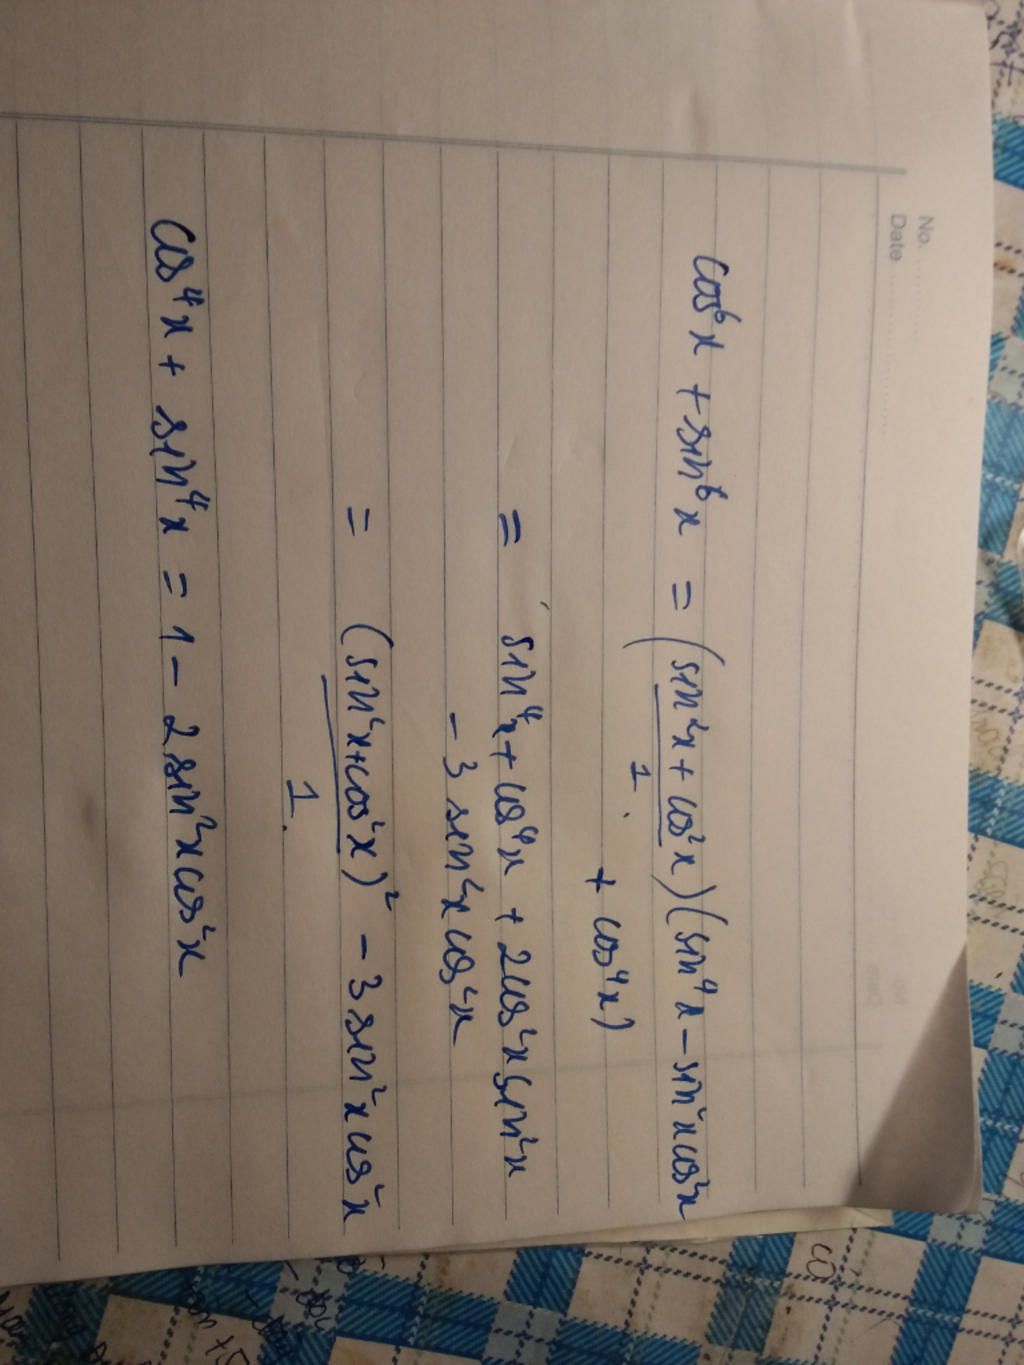 No.
Date
cos⁶x + sin⁶x = (sin²x + cos²x)(sin⁴x - sin²x cos²x
1
+ cos⁴x)
= sin⁴x + cos⁴x + 2cos²x sin²x
- 3 sin²x cos²x
= (sin²x + cos²x)² - 3 sin²x cos²x
1
cos⁴x + sin⁴x = 1 - 2 sin²x cos²x